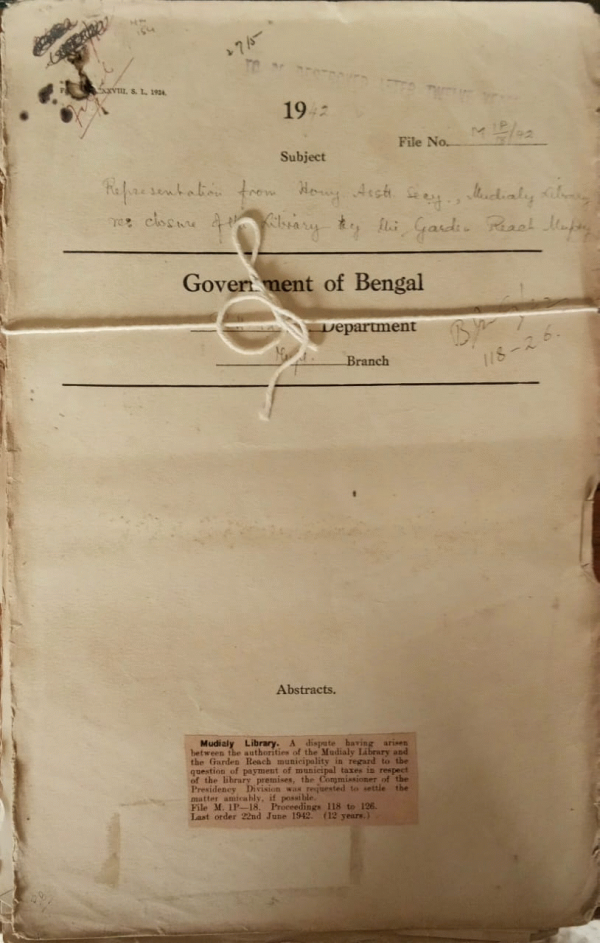 2715
XXVIII, S. I., 1924.
1942
File No. M 1P/18/42
Subject
Representation from Hony Asstt. Secy., Mudialy Library
re: closure of the Library by the Garden Reach Munpty
Government of Bengal
Department
Branch
118-26.
Abstracts.
Mudialy Library. A dispute having arisen
between the authorities of the Mudialy Library and
the Garden Reach municipality in regard to the
question of payment of municipal taxes in respect
of the library premises, the Commissioner of the
Presidency Division was requested to settle the
matter amicably, if possible.
File M. 1P—18. Proceedings 118 to 126.
Last order 22nd June 1942. (12 years.)